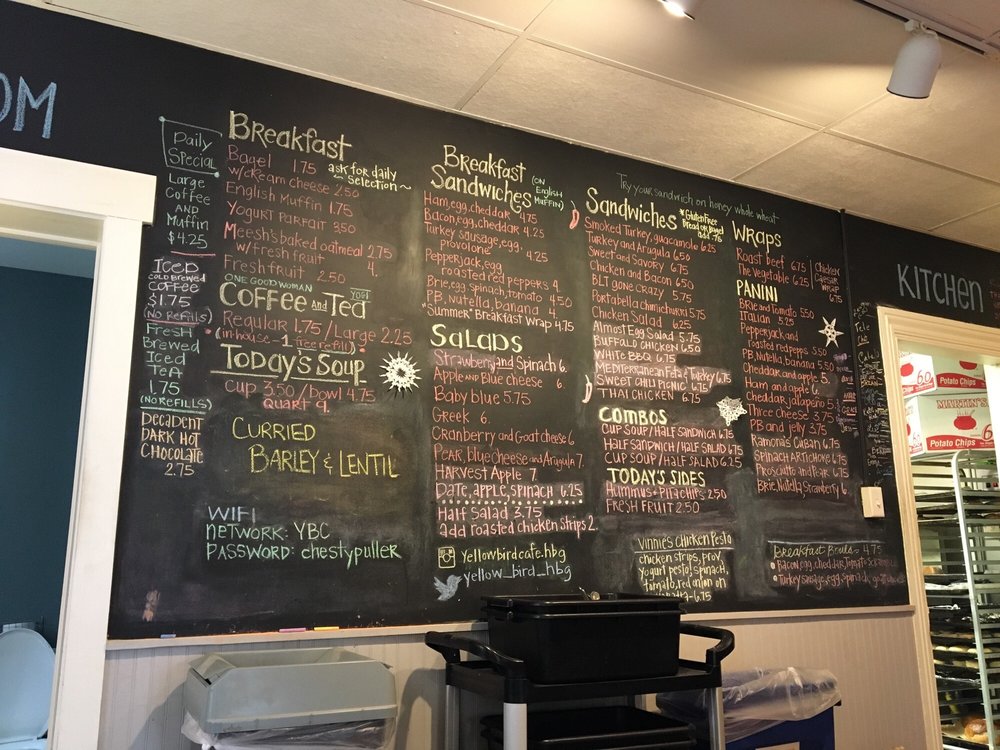 OM
Daily
Special
Large
Coffee
AND
Muffin
$4.25
Iced
COLD BREWED
COFFEE
$1.75
(No Refills)
Fresh
Brewed
Iced
Tea
1.75
(NO REFILLS)
DECADENT
DARK HOT
CHOCOLATE
2.75
Breakfast
Bagel 1.75 ask for daily
w/cream cheese 2.50 Selection
English Muffin 1.75
Yogurt Parfait 3.50
Meesh's baked oatmeal 2.75
w/fresh fruit 4.
Fresh fruit 2.50
ONE GOOD WOMAN YOGI
COFFEE and Tea
Regular 1.75 / Large 2.25
(in-house - 1 free refill)
Today's Soup
Cup 3.50 / Bowl 4.75
Quart 9.
CURRIED
BARLEY & LENTIL
WIFI
NETWORK: YBC
PASSWORD: chestypuller
Breakfast
Sandwiches (ON ENGLISH MUFFIN)
Ham, egg, cheddar 4.75
Bacon, egg, cheddar 4.25
Turkey sausage, egg,
provolone 4.25
Pepperjack, egg
roasted red peppers 4.
Brie, egg, spinach, tomato 4.50
PB, nutella, banana 4.
"Summer" Breakfast Wrap 4.75
Salads
Strawberry and Spinach 6.
Apple and Blue cheese 6.
Baby blue 5.75
Greek 6.
Cranberry and Goat cheese 6.
Pear, blue cheese and Arugula 7.
Harvest Apple 7.
Date, apple, spinach 6.25
Half Salad 3.75
add roasted chicken strips 2.
yellowbirdcafe.hbg
yellow_bird_hbg
Try your sandwich on honey whole wheat
Sandwiches *Gluten Free
Bread or Bagel
add .75
Smoked Turkey, guacamole 6.25
Turkey and Arugula 6.50
Sweet and Savory 6.75
Chicken and Bacon 6.50
BLT gone crazy 5.75
Portabella chimichurri 5.75
Chicken Salad 6.25
Almost Egg Salad 5.75
Buffalo Chicken 6.50
White BBQ 6.75
Mediterranean Feta & Turkey 6.75
Sweet Chili Picnic 6.75
Thai Chicken 6.75
COMBOS
CUP SOUP/HALF SANDWICH 6.75
HALF SANDWICH/HALF SALAD 6.75
CUP SOUP/HALF SALAD 6.25
TODAY'S SIDES
Hummus + Pita chips 2.50
FRESH FRUIT 2.50
Vinnie's Chicken Pesto
chicken strips, prov,
yogurt pesto, spinach,
tomato, red onion on
6.75
Wraps
Roast beef 6.75
The Vegetable 6.25
Chicken
Caesar
Wrap
6.75
PANINI
Brie and Tomato 5.50
Italian 5.25
Pepperjack and
roasted red pepps 5.50
PB, Nutella, banana 5.50
Cheddar and apple 5.
Ham and apple 6.
Cheddar, jalapeño 5.
Three cheese 3.75
PB and jelly 3.75
Ramona's Cuban 6.75
Spinach Artichoke
Prosciutto and Pear 6.75
Brie, Nutella, Strawberry 6.
Breakfast Bowls 4.75
Bacon, egg, cheddar, tomato
Turkey sausage, egg, spinach
KITCHEN
Potato Chips
MARTIN'S
Potato Chips